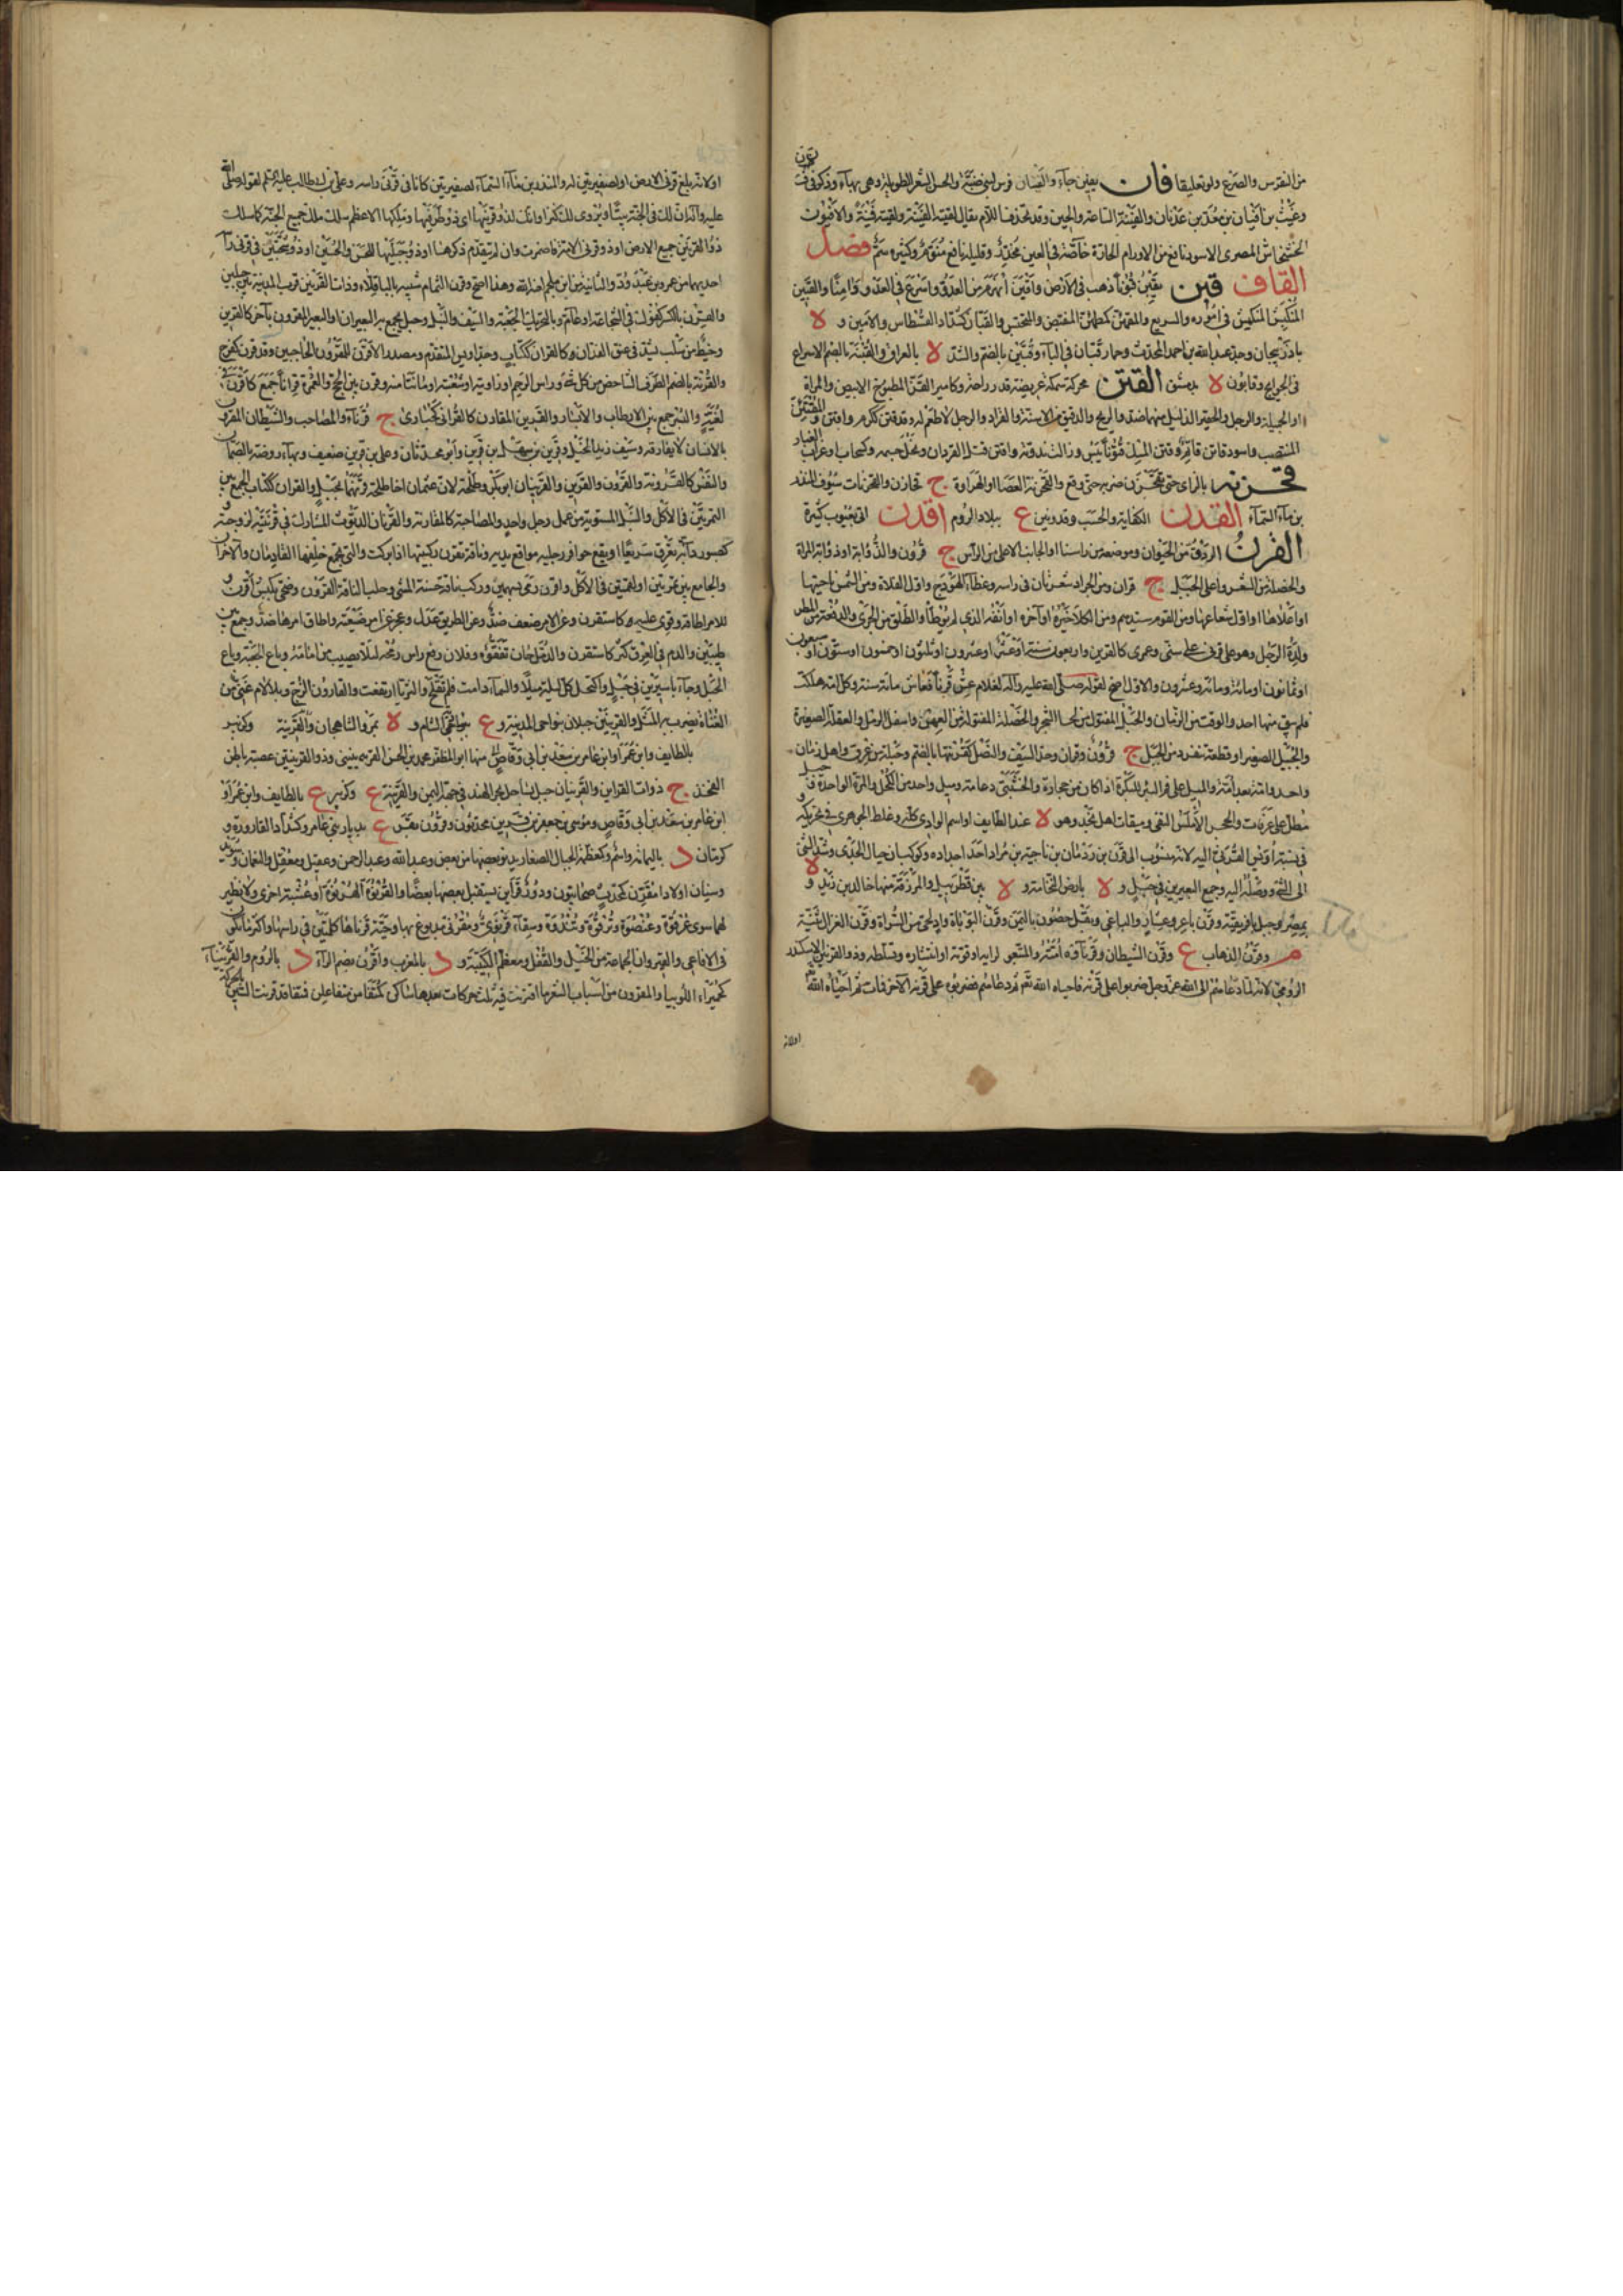 من النقرس والصرع ولو تعليقا فان يفين جاء والفينان فرس لبني ضبة والحسن الشعر الطويله وهي بهاء وذكر في ف ن ن
وغيث بن افيان بن معد بن عدنان والفينة الساعة والحين وقد تحذف اللام يقال لقيته الفينة ولقيته فينة والافيون
الخشخاش المصري الاسود نافع من الاورام الحارة خاصة في العين مخدر وقليله نافع منوم وكثيره سم فصل
القاف قبن يقبن قبونا ذهب في الارض واقبن انهزم من العدو واسرع في العدو امنا والقبين
المنكمش في اموره والسريع والمقبئن كمطمئن المنقبض والمنخنس والقبان كشداد القسطاس والامين و لا
باذربيجان وجد عبد الله بن احمد المحدث وحمار قبان في الباء وقبين بالضم والشد لا بالعراق والقبنة بالضم الاسراع
في الحوائج وقابون لا بدمشق القتن محركة سمكة عريضة قدر راحة وكامير القتن المطبوخ الابيض والمراة
المنتصب واسود قاتن قاتم وقتن المسك قتونا يبس وزالت ندوته واقتن قتل القردان
قحزنه بالزاي حتى تقحزن ضربه حتى وقع والقحزنة العصا او الهراوة ج قحازن والقحزنات سيوف المنذر
بن ماء السماء القدن الكفاية والحسب وقدونين ع ببلاد الروم اقدن اتى بعيوب كثيرة
القرن الروق من الحيوان وموضعه من راسنا او الجانب الاعلى من الراس ج قرون والذؤابة او ذؤابة المراة
والخصلة من الشعر واعلى الجبل ج قران ومن الجراد شعرتان في راسه وغطاء للهودج واول الفلاة ومن الشمس ناحيتها
او اعلاها او اول شعاعها ومن القوم سيدهم ومن الكلا خيره او آخره او انفه الذي لم يوطا والطلق من الجري والدفعة من المطر
ولدة الرجل وهو على قرني على سني وعمري كالقرين واربعون سنة او عشر او عشرون او ثلثون او خمسون او ستون او سبعون
او ثمانون او مائة او مائة وعشرون والاول اصح لقوله صلى الله عليه وآله لغلام عش قرنا فعاش مائة سنة وكل امة هلكت
فلم يبق منها احد والوقت من الزمان والحبل المفتول من لحا الشجر والخصلة المفتولة من العهن واسفل الرمل والعفلة الصغيرة
والجبيل الصغير او قطعة تنفرد من الجبل ج قرون وقران وحد السيف والنصل كقرنتهما بالضم وحلبة من عرق واهل زمان
واحد وامة بعد امة والميل على فم البئر للبكرة اذا كان من حجارة والخشبي دعامة وميل واحد من الكحل والمرة الواحدة وجبل
مطل على عرفات والحجر الاملس النقي وميقات اهل نجد وهو لا عند الطايف او اسم الوادي كله وغلط الجوهري في تحريكه
في نسبة اويس القرني اليه لانه منسوب الى قرن بن ردمان بن ناجية بن مراد احد اجداده وكوكبان حيال الجدي وشد الشيء
الى الشيء ووصله اليه وجمع البعيرين في حبل و لا بارض النحامة و لا بين قطربل والمزرفة منها خالد بن زيد و لا
بمصر وجبل بافريقية وقرن باعر وعشار والناعي وبقل حصون باليمن وقرن البوباة واد يجيء من السراة وقرن الغزال ثنية
م وقرن الذهاب ع وقرن الشيطان وقرناه امته والمتبعون لرايه او قوته او انتشاره وتسلطه وذو القرنين الاسكندر
الرومي لانه لما دعاهم الى الله عز وجل ضربوه على قرنه فاحياه الله ثم دعاهم فضربوه على قرنه الآخر فمات ثم احياه الله
اولانه
اولانه بلغ قرني الارض اولضفيرتين له والمنذر بن ماء السماء لضفيرتين كانتا في قرني راسه وعلي بن ابي طالب عليه السلم لقوله صلى الله
عليه وآله ان لك في الجنة بيتا ويروى كنزا وانك لذو قرنيها اي ذو طرفيها وملكها الاعظم تسلك ملك جميع الجنة كما سلك
ذو القرنين جميع الارض او ذو قرني الامة فاضمرت وان لم يتقدم ذكرها او ذو جبليها للحسن والحسين او ذو شجتين في قرني راسه
احديهما من عمرو بن عبد ود والثانية من ابن ملجم لعنه الله وهذا اصح وقرن الثمام شبيه بالباقلاء وذات القرنين قرب المدينة بين جبلين
والقرن بالكسر كفوك في الشجاعة او عام وبالتحريك الجعبة والسيف والنبل وحبل يجمع به البعيران او البعير المقرون بآخر كالقرين
وخيط من سلب يشد في عنق الفدان كالقران ككتاب وجد اويس المتقدم ومصدر الاقرن للمقرون الحاجبين وقد قرن كفرح
والقرنة بالضم الطرف الشاخص من كل شيء وراس الرحم او زاويته او شعبته او ما نتا منه وقرن بين الحج والعمرة قرانا جمع كاقرن في
لغية والبسر جمع بين الارطاب والابسار والقرين المقارن كالقرانى كحبارى ج قرناء والمصاحب والشيطان المقرون
بالانسان لا يفارقه وسيف زيد الخيل وقرين بن سهل بن قرين وابوه محدثان وعلي بن قرين ضعيف وبهاء روضة بالصمان
والنفس كالقرونة والقرون والقرين والقرينان ابو بكر وطلحة لان عثمان اخا طلحة قرنهما بحبل والقران ككتاب الجمع بين
التمرتين في الاكل والنبل المستوية من عمل رجل واحد والمصاحبة كالمقارنة والقرنان الديوث المشارك في قرينته لزوجته
كصبور دابة يعرق سريعا او يقع حوافر رجليه مواقع يديه وناقة تقرن ركبتيها اذا بركت والتي يجتمع خلفاها القادمان والآخران
والجامع بين تمرتين او لقمتين في الاكل واقرن رمى بسهمين وركب ناقة حسنة المشي وحلب الناقة القرون وضحى بكبش اقرن و
للامر اطاقه وقوي عليه كاستقرن وعن الامر ضعف ضد وعن الطريق عدل وعجز عن امر ضيعته واطاق امرها ضد وجمع بين
رطبتين والدم في العرق كثر كاستقرن والدمل حان تفقؤه وفلان رفع راس رمحه لئلا يصيب من امامه وباع الجعبة وباع
الحبل وجاء باسيرين في حبل واكتحل كل ليلة ميلا والسماء دامت فلم تقلع والثريا ارتفعت والقارون الوج وبلا لام عتي من
العتاة يضرب به المثل والقرينين جبلان بنواحي اليمامة و ع ببادية الشام و لا بمرو الشاهجان والقرينة وكزبير
بالطايف وابن عمر او ابن عامر بن سعد بن ابي وقاص منها ابو المظفر محمد بن الحسن القريني وذو القرينتين عصبة باطن
الفخذ ج ذوات القراين والقرينتان جبل بساحل بحر الهند في جهة اليمن والقرينة ع وكزبير ع بالطايف وابن عمر او
ابن عامر بن سعد بن ابي وقاص وموسى بن جعفر بن قرين محدثون وقرون بقر ع بديار بني عامر وكشداد القارورة و
كرمان د باليمامة واسم وكمعظمة الجبال الصغار يدنو بعضها من بعض وعبد الله وعبد الرحمن وعقيل ومعقل والنعمان وسويد
وسنان اولاد مقرن كمحدث صحابيون ودور قراين يستقبل بعضها بعضا والقرنوة الهرنوة او عشبة اخرى ولا نظير
لهما سوى عرقوة وعنصوة وترقوة وثندوة وسقاء قرنوي ومقرنى مدبوغ بها وحية قرناء لها كلحمتين في راسها واكثر ما يكون
في الافاعي والقيروان الجماعة من الخيل والقفل ومعظم الكتيبة و د بالمغرب واقرن بضم الراء د بالروم والقريناء
كحميراء اللوبيا والمقرون من اسباب الشعر ما اقترنت فيه ثلث حركات بعدها ساكن كمتفا من متفاعلن فمتفا قد قرنت السببين